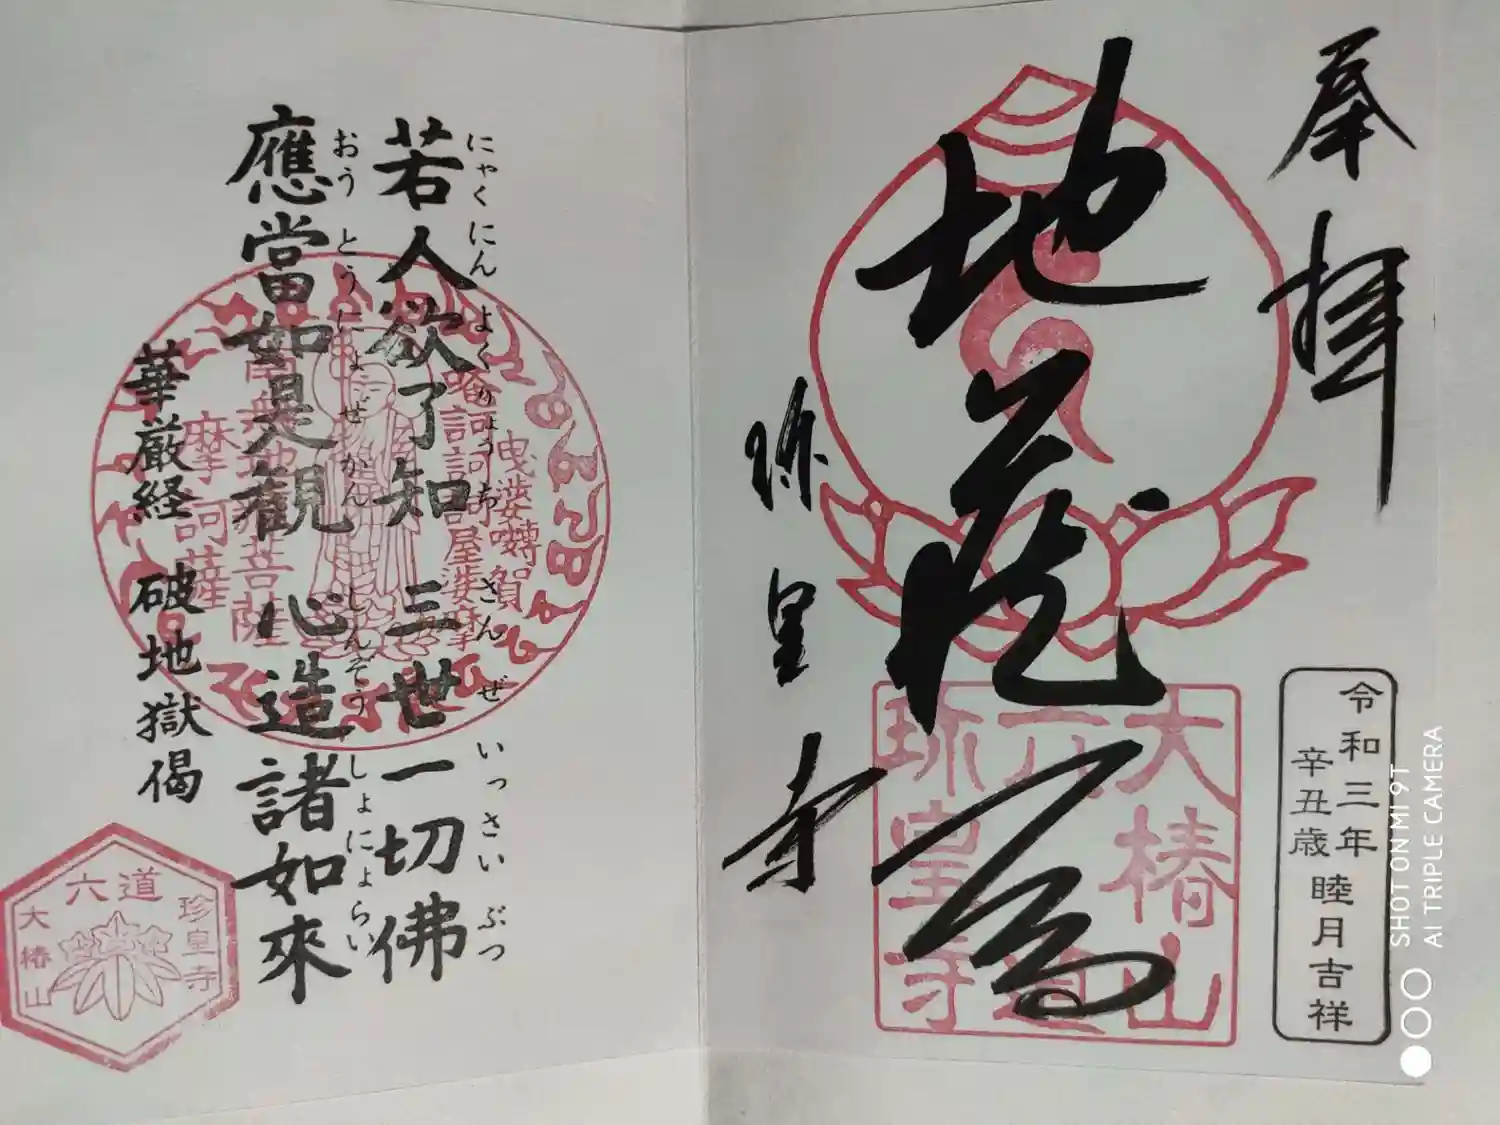 奉拝
地蔵尊
珎皇寺
大椿山
六道
珎皇寺
令和三年
辛丑歳
睦月吉祥
若人欲了知三世一切佛
にゃくにんよくりょうちさんぜいっさいぶつ
應當如是観心造諸如來
おうとうにょぜかんしんぞうしょにょらい
華厳経 破地獄偈
曳婆囀賀
唵訶訶訶屋婆摩
南無地蔵菩薩
摩訶薩
六道
珍皇寺
大椿山
SHOT ON MI 9T
AI TRIPLE CAMERA